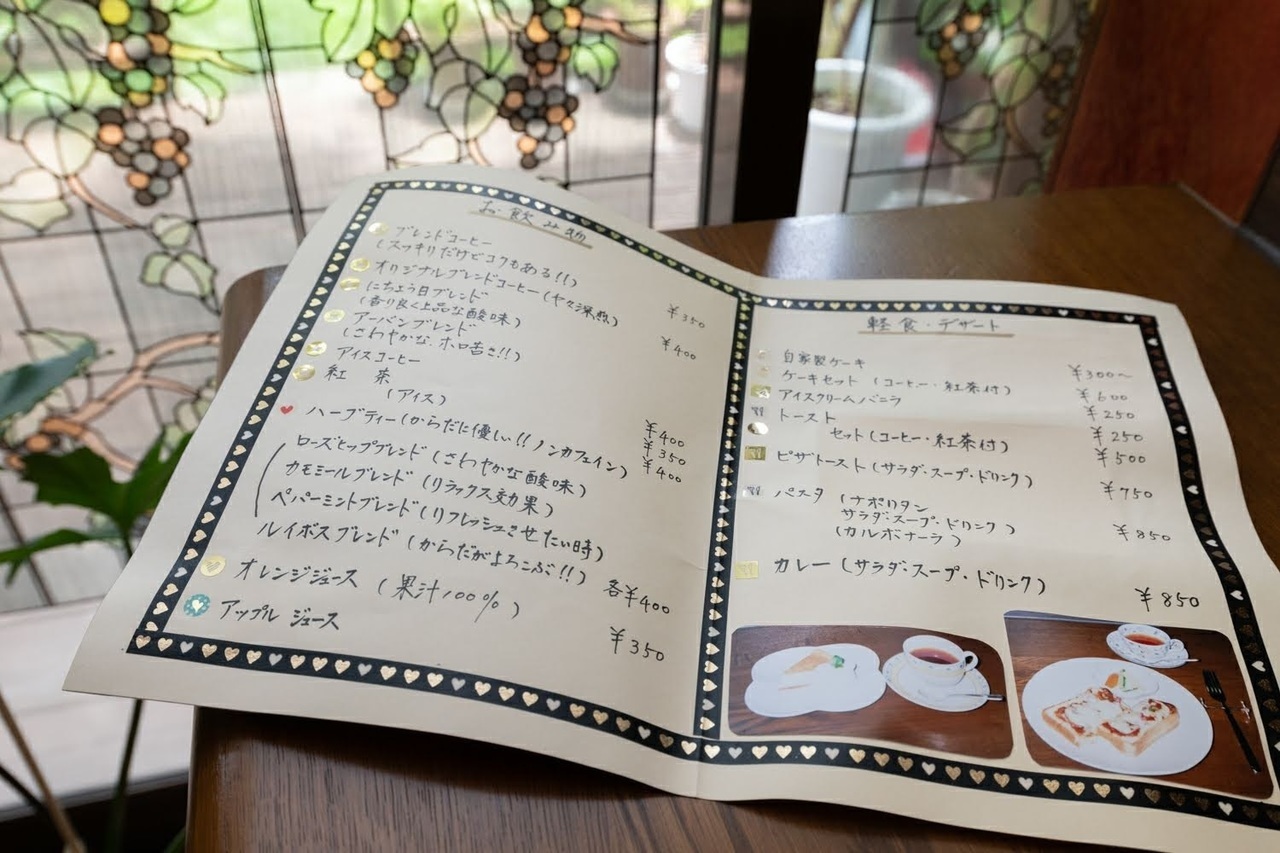 お飲み物
ブレンドコーヒー
(スッキリだけどコクもある!!) ¥350
オリジナルブレンドコーヒー(やや深煎) ¥400
にちよう日ブレンド
(香り良く上品な酸味)
アーバンブレンド
(さわやかな、ホロ苦さ!!)
アイスコーヒー ¥400
紅 茶 ¥350
(アイス) ¥400
ハーブティー(からだに優しい!!ノンカフェイン)
ローズヒップブレンド(さわやかな酸味)
カモミールブレンド(リラックス効果)
ペパーミントブレンド(リフレッシュさせたい時)
ルイボスブレンド(からだがよろこぶ!!) 各¥400
オレンジジュース (果汁100%) ¥350
アップルジュース
軽食・デザート
自家製ケーキ ¥300〜
ケーキセット (コーヒー・紅茶付) ¥600
アイスクリームバニラ ¥250
トースト ¥250
セット(コーヒー・紅茶付) ¥500
ピザトースト(サラダ・スープ・ドリンク) ¥750
パスタ (ナポリタン
サラダ・スープ・ドリンク) ¥850
(カルボナーラ)
カレー(サラダ・スープ・ドリンク) ¥850